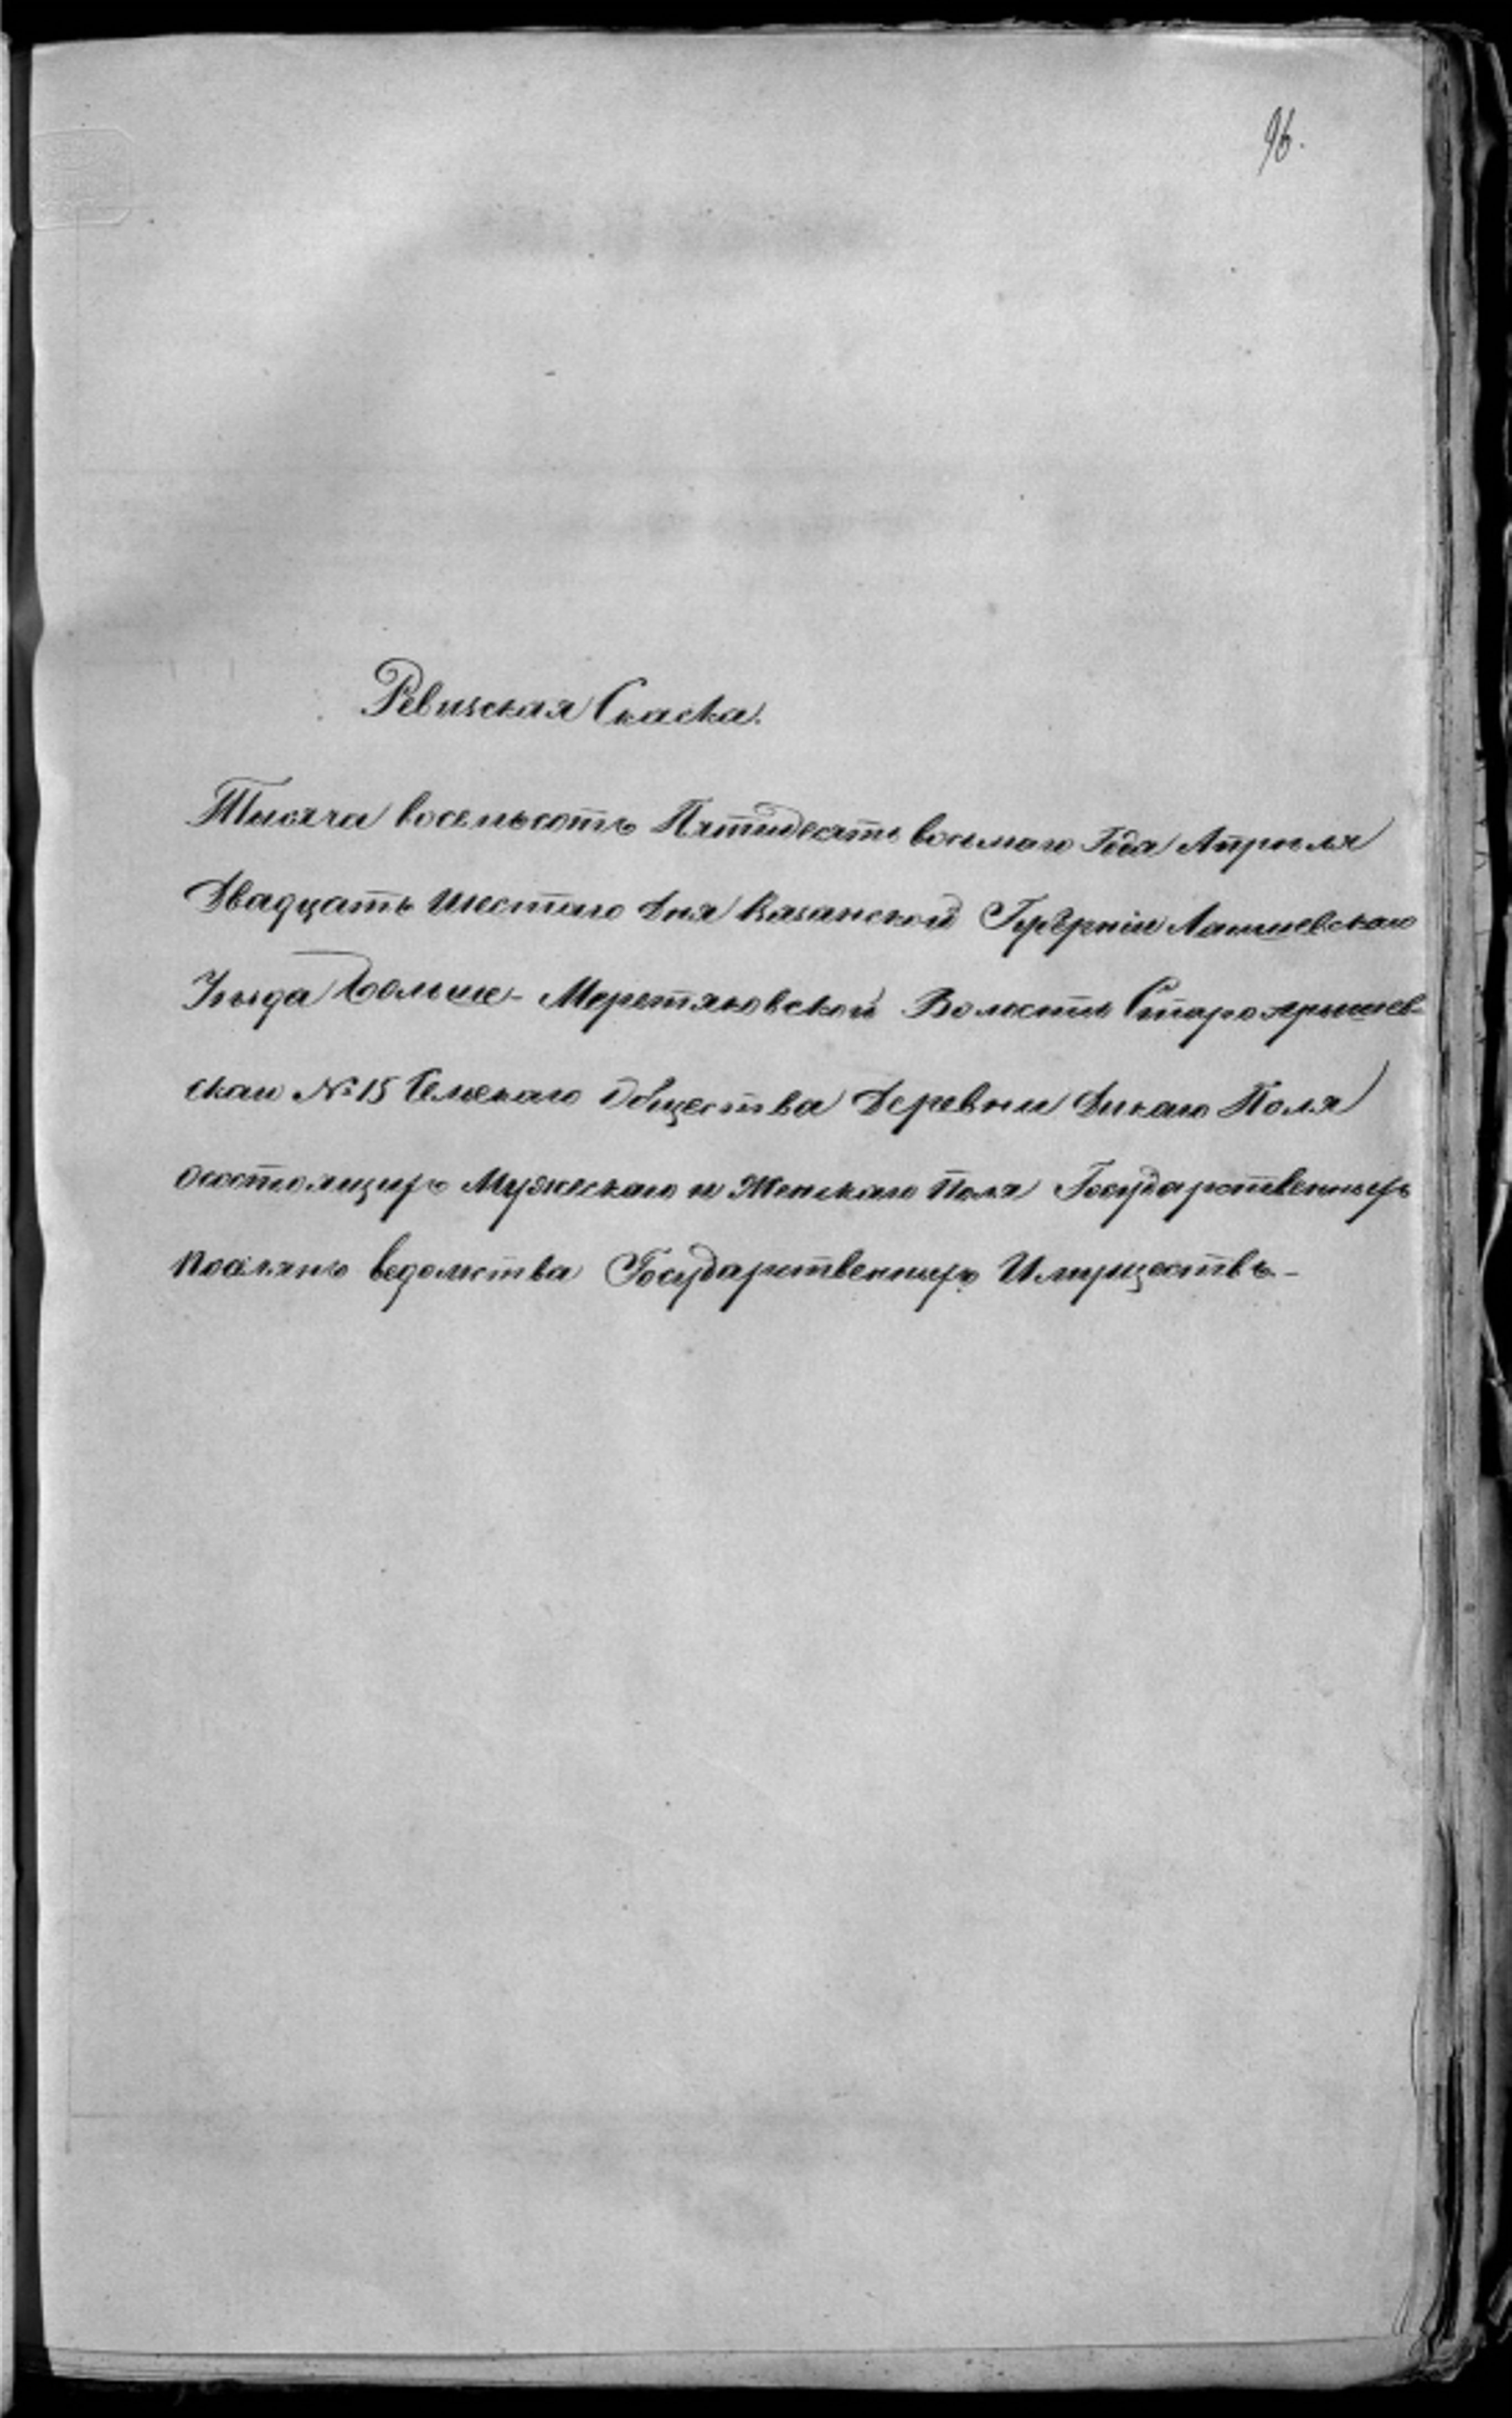 96.
Ревизская Скаска.
Тысяча восемьсотъ Пятидесятъ восьмаго Года Апреля
Двадцать шестаго дня Казанской Губерніи Лаишевскаго
Уезда Больше-Меретяковской Волости Староярышев-
скаго №15 Сельскаго Общества Деревни Дикаго Поля
осостоящихъ Мужескаго и Женскаго Пола Государственныхъ
поселянъ ведомства Государственныхъ Имуществъ.-